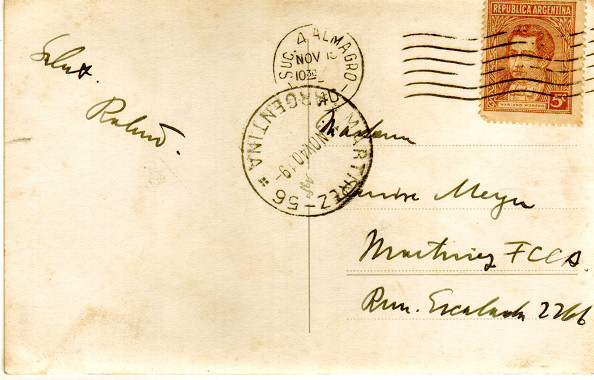 Salut.
Roland.
SUC. 4 ALMAGRO
NOV 12
10 30
REPUBLICA ARGENTINA
MARIANO MORENO
5 c
MARTINEZ-56
ARGENTINA
NOV 40 19
Madame
Meyer
Martinez FCCA.
Rum. Escalada 2266